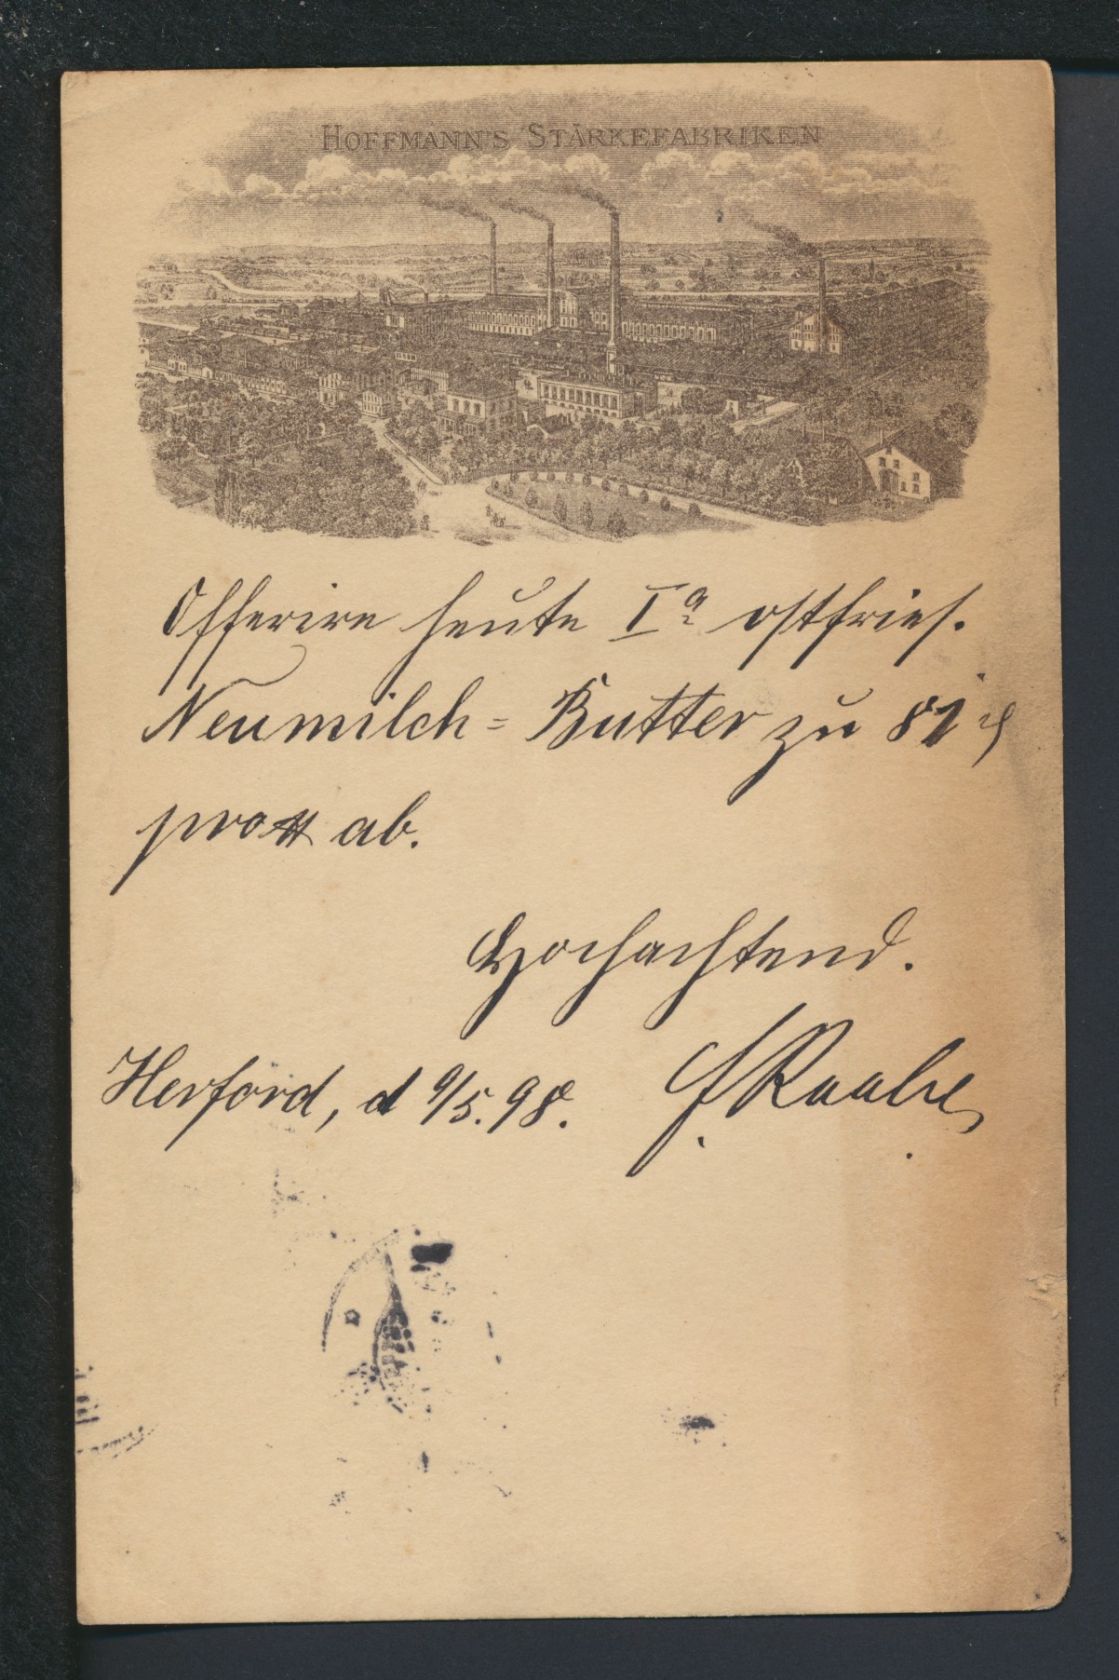 HOFFMANN'S STÄRKEFABRIKEN
Offerire heute Iª ostfries.
Neumilch = Butter zu 81 ₰
pro ℔ ab.
Hochachtend.
Herford, d 9/5. 98. Raabe